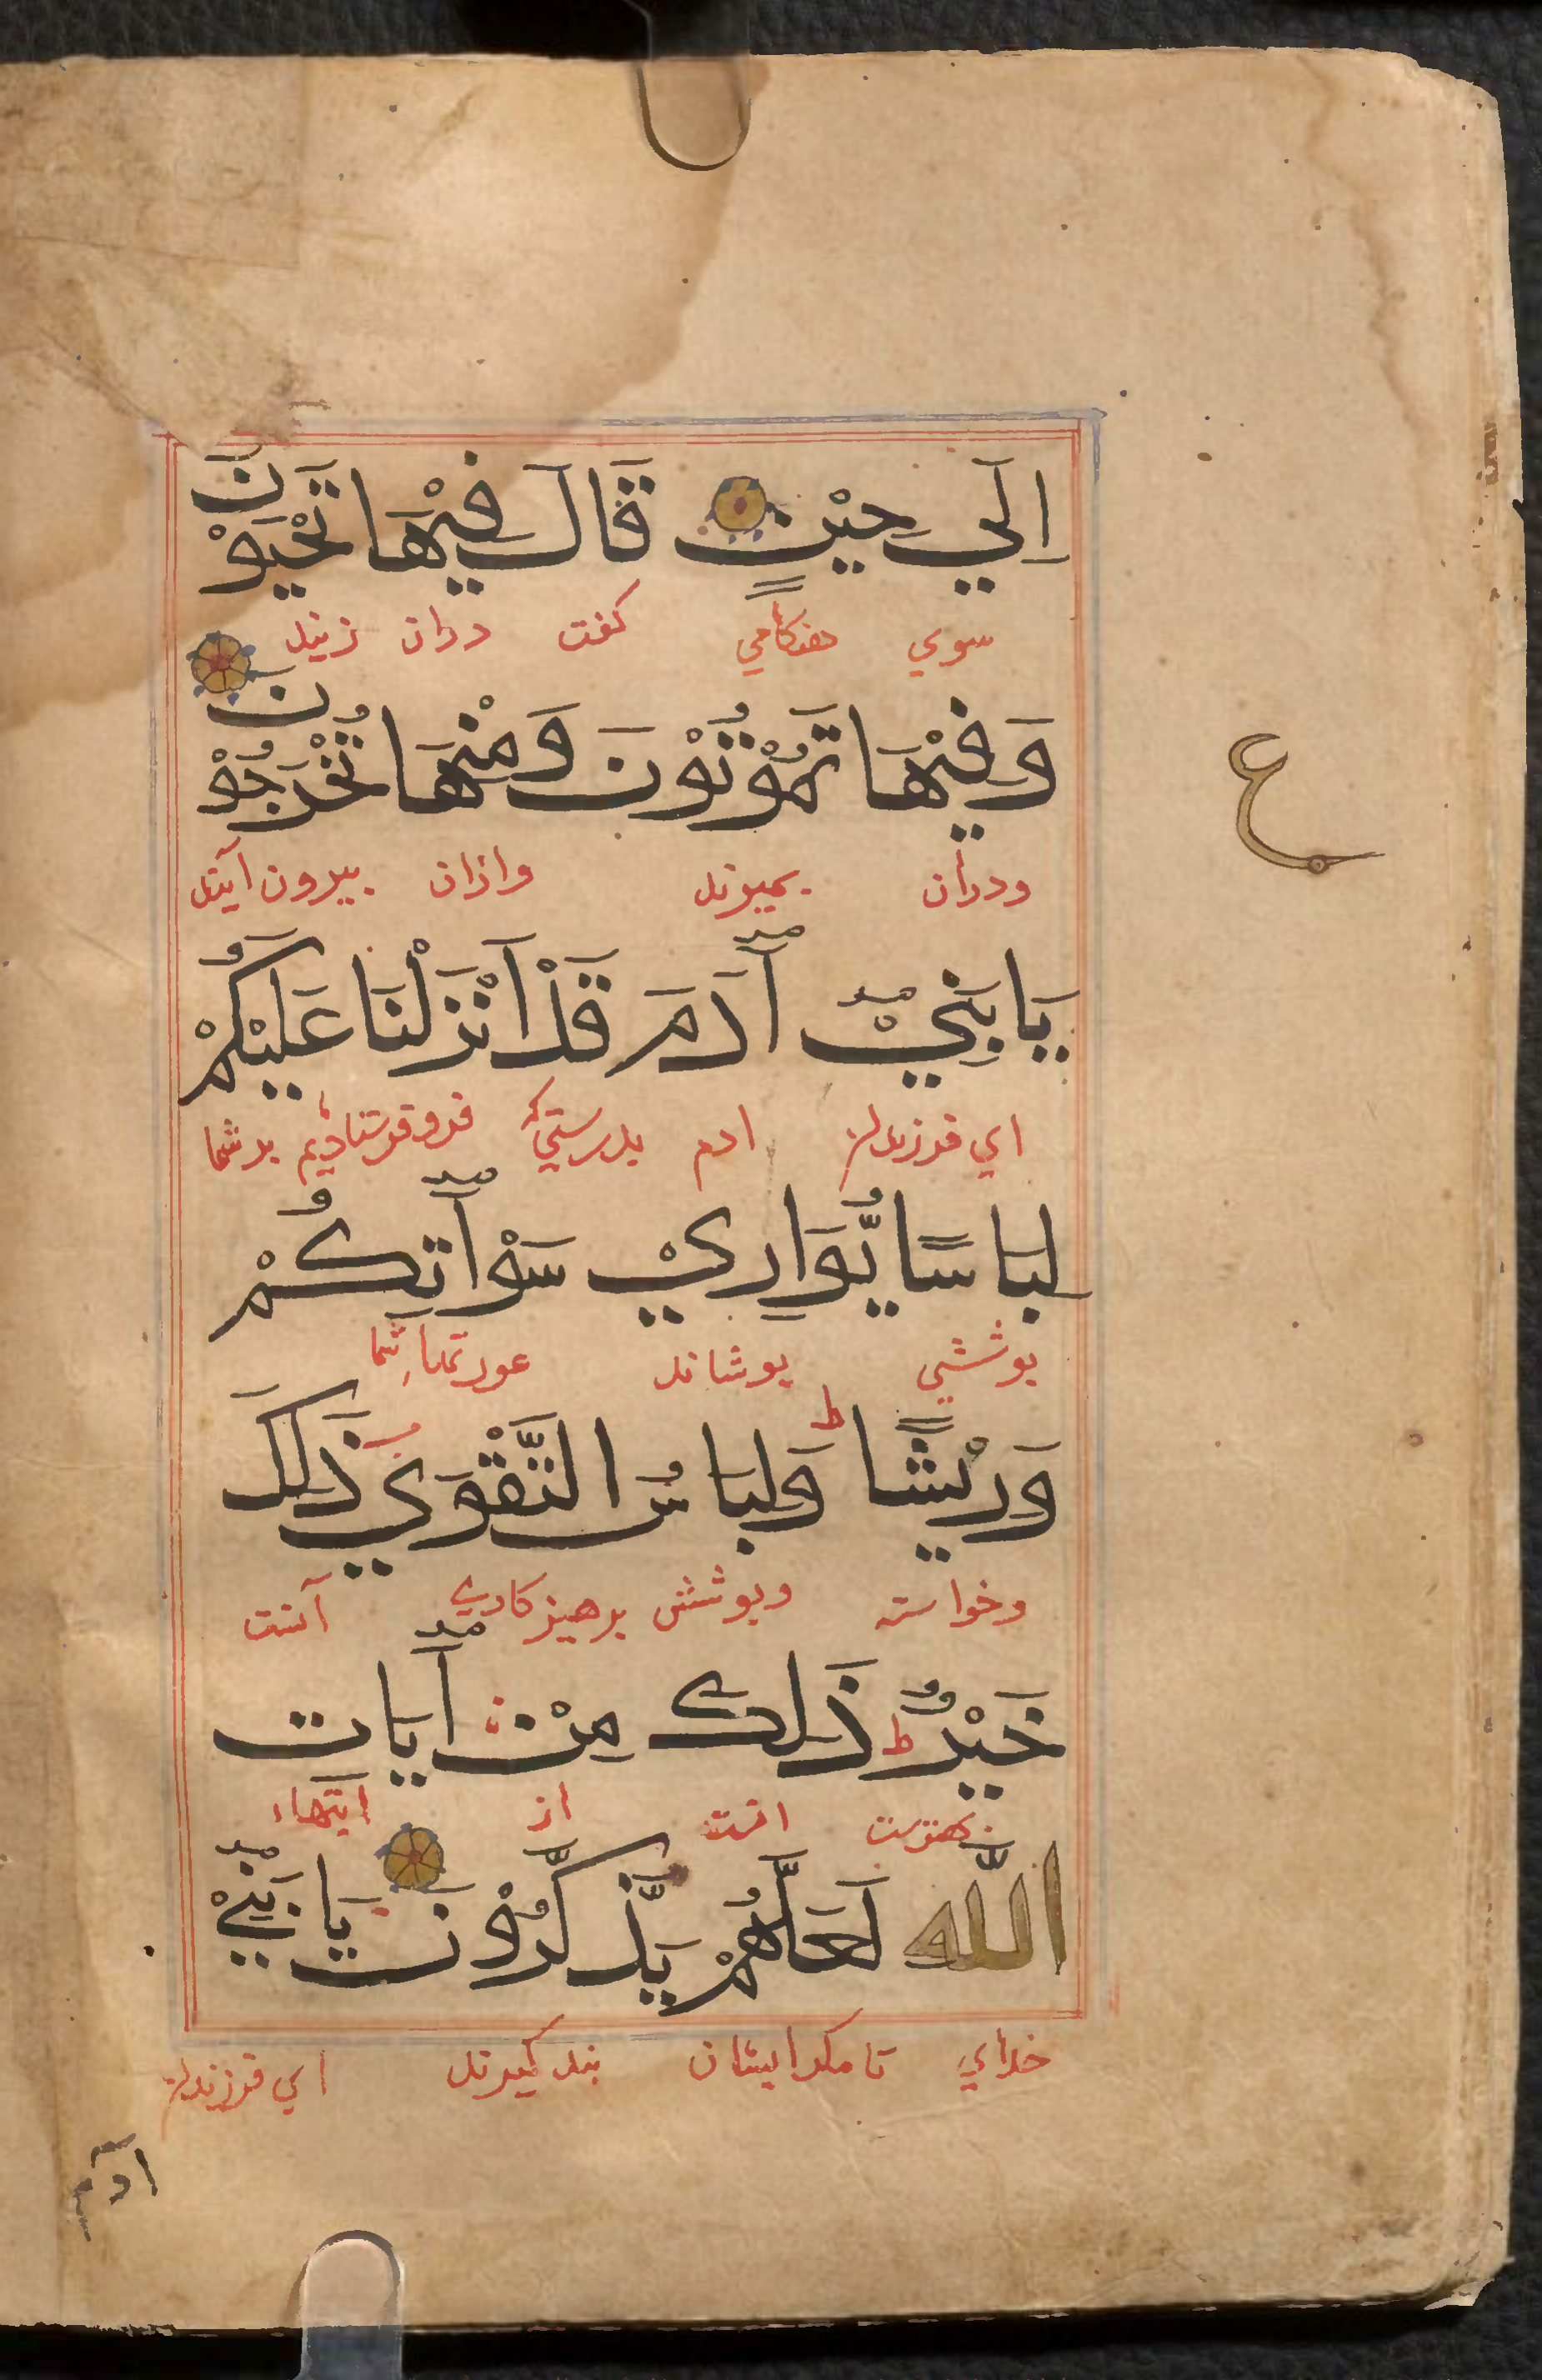 اِلَي حِيْنٍ قَالَ فِيْهَا تَحْيَوْنَ
سوي هنكامي كفت دران زنيد
وَفِيْهَا تَمُوْتُوْنَ وَمِنْهَا تُخْرَجُوْنَ
ع
ودران بميريد وازان بيرون آييد
يَا بَنِيْ آدَمَ قَدْ اَنْزَلْنَا عَلَيْكُمْ
اي فرزندان ادم بدرستي كه فرو فرستاديم بر شما
لِبَاسًا يُّوَارِيْ سَوْآتِكُمْ
پوششي پوشاند عورتهاء شما
وَرِيْشًا ط وَلِبَاسُ التَّقْوَي ذَلِكَ
وخواسته وپوشش پرهيزكاري آنست
خَيْرٌ ط ذَلِكَ مِنْ آيَات
بهترست انست از ايتهاء
اللّه لَعَلَّهُمْ يَذَّكَّرُوْنَ يَا بَنِيْ
خداي تا مكر ايشان پند كيرند اي فرزندان
آدم